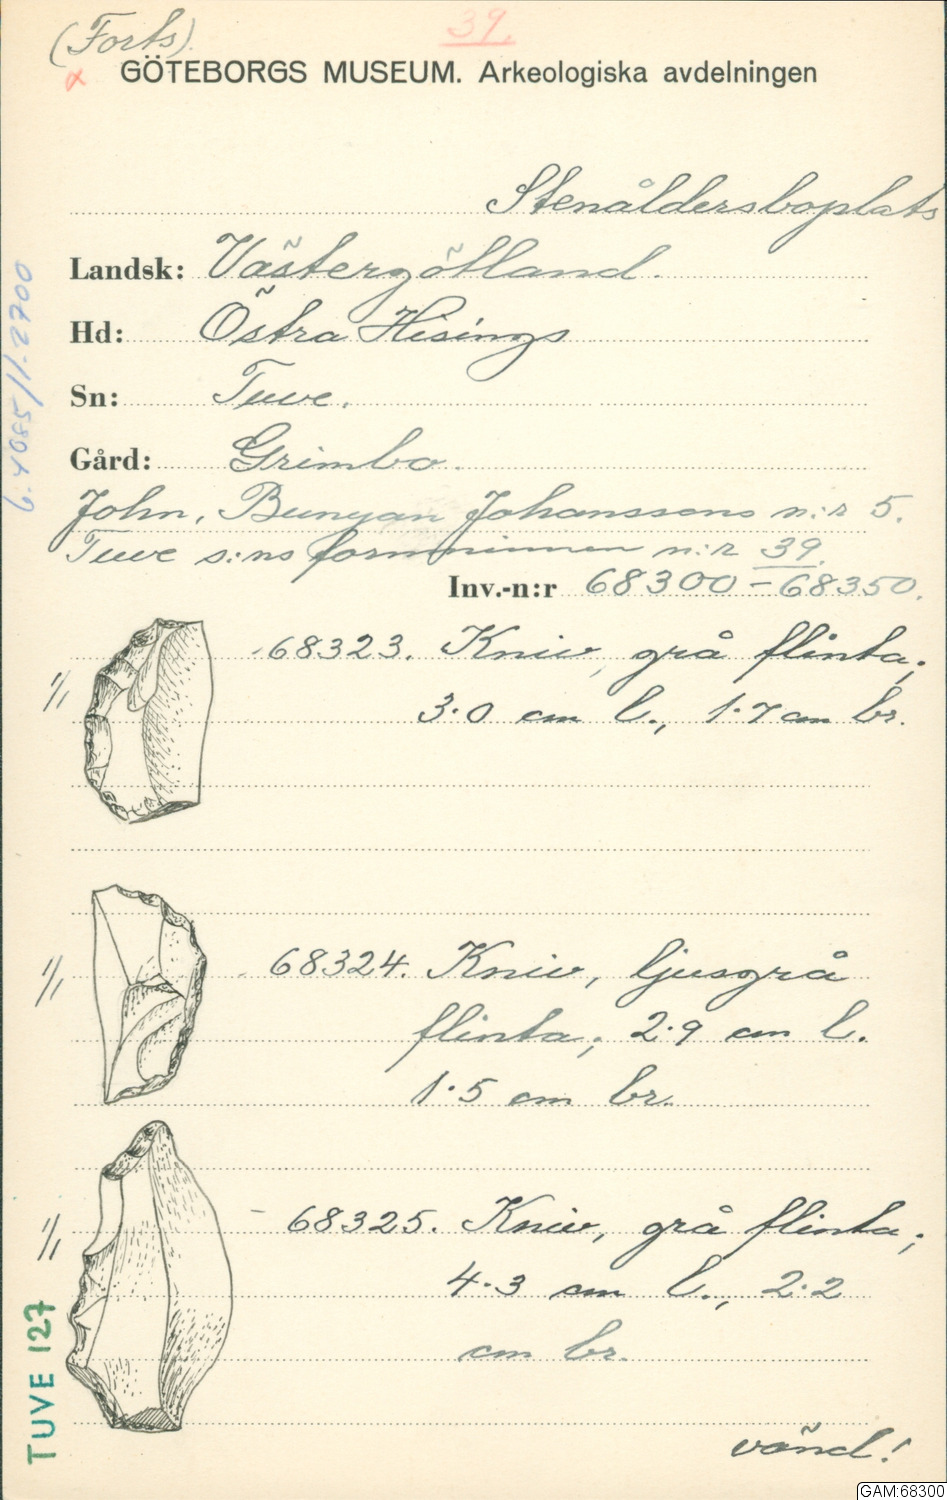 (Forts).
39.
x
GÖTEBORGS MUSEUM. Arkeologiska avdelningen
Stenåldersboplats
Landsk: Västergötland.
Hd: Östra Hisings
Sn: Tuve.
Gård: Grimbo.
John. Bunyan Johanssons n:r 5.
Tuve s:ns fornminnen n:r 39.
Inv.-n:r 68300–68350.
1/1
68323. Kniv, grå flinta;
3·0 cm l., 1·7 cm br.
1/1
68324. Kniv, ljusgrå
flinta; 2·9 cm l.
1·5 cm br.
1/1
68325. Kniv, grå flinta;
4·3 cm l., 2·2
cm br.
vänd!
TUVE 127
GAM:68300